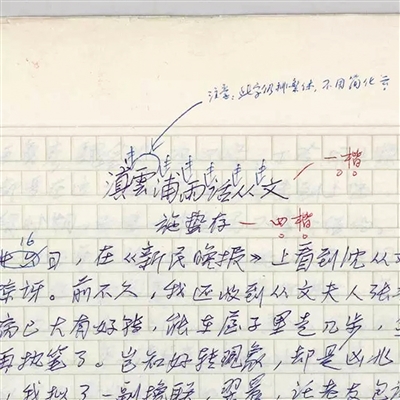 注意：此字仍排繁体，不用简化字
滇雲浦雨话从文 一楷
施蛰存 — 四楷
16日，在《新民晚报》上看到沈从文
惊讶。前不久，我还收到从文夫人张
病已大有好转，能在屋子里走几步，
再执笔了。岂知好转现象，却是凶兆
，我拟了一副挽联，翌晨，